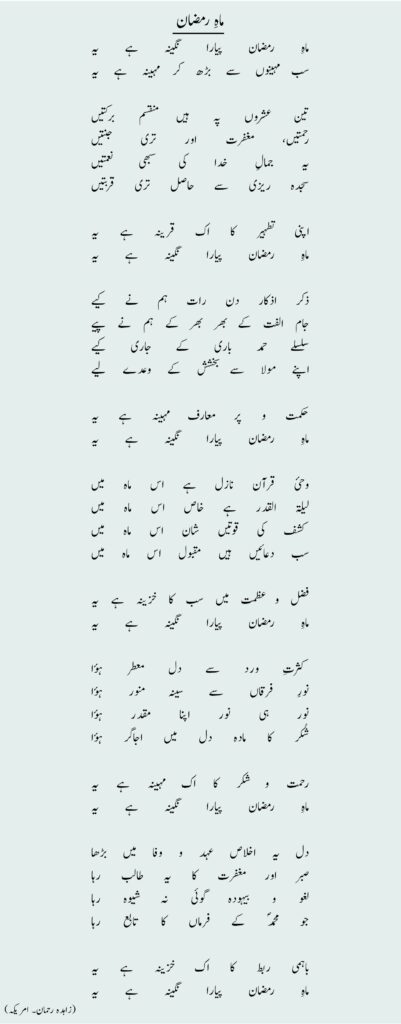 ماہِ رمضان
ماہِ رمضان پیارا نگینہ ہے یہ
سب مہینوں سے بڑھ کر مہینہ ہے یہ
تین عشروں پہ ہیں منقسم برکتیں
رحمتیں، مغفرت اور تری جنتیں
یہ جمالِ خدا کی سبھی نعمتیں
سجدہ ریزی سے حاصل تری قربتیں
اپنی تطہیر کا اک قرینہ ہے یہ
ماہِ رمضان پیارا نگینہ ہے یہ
ذکر اذکار دن رات ہم نے کیے
جام الفت کے بھر بھر کے ہم نے پیے
سلسلے حمد باری کے جاری کیے
اپنے مولا سے بخشش کے وعدے لیے
حکمت و پر معارف مہینہ ہے یہ
ماہِ رمضان پیارا نگینہ ہے یہ
وحیٔ قرآن نازل ہے اس ماہ میں
لیلۃ القدر ہے خاص اس ماہ میں
کشف کی قوتیں شان اس ماہ میں
سب دعائیں ہیں مقبول اس ماہ میں
فضل و عظمت میں سب کا خزینہ ہے یہ
ماہِ رمضان پیارا نگینہ ہے یہ
کثرتِ ورد سے دل معطر ہؤا
نورِ فرقاں سے سینہ منور ہؤا
نور ہی نور اپنا مقدر ہؤا
شُکر کا مادہ دل میں اجاگر ہؤا
رحمت و شکر کا اک مہینہ ہے یہ
ماہِ رمضان پیارا نگینہ ہے یہ
دل یہ اخلاص عہد و وفا میں بڑھا
صبر اور مغفرت کا یہ طالب رہا
لغو و بیہودہ گوئی نہ شیوہ رہا
جو محمدؐ کے فرماں کا تابع رہا
باہمی ربط کا اک خزینہ ہے یہ
ماہِ رمضان پیارا نگینہ ہے یہ
(زاہدہ رحمان۔ امریکہ)